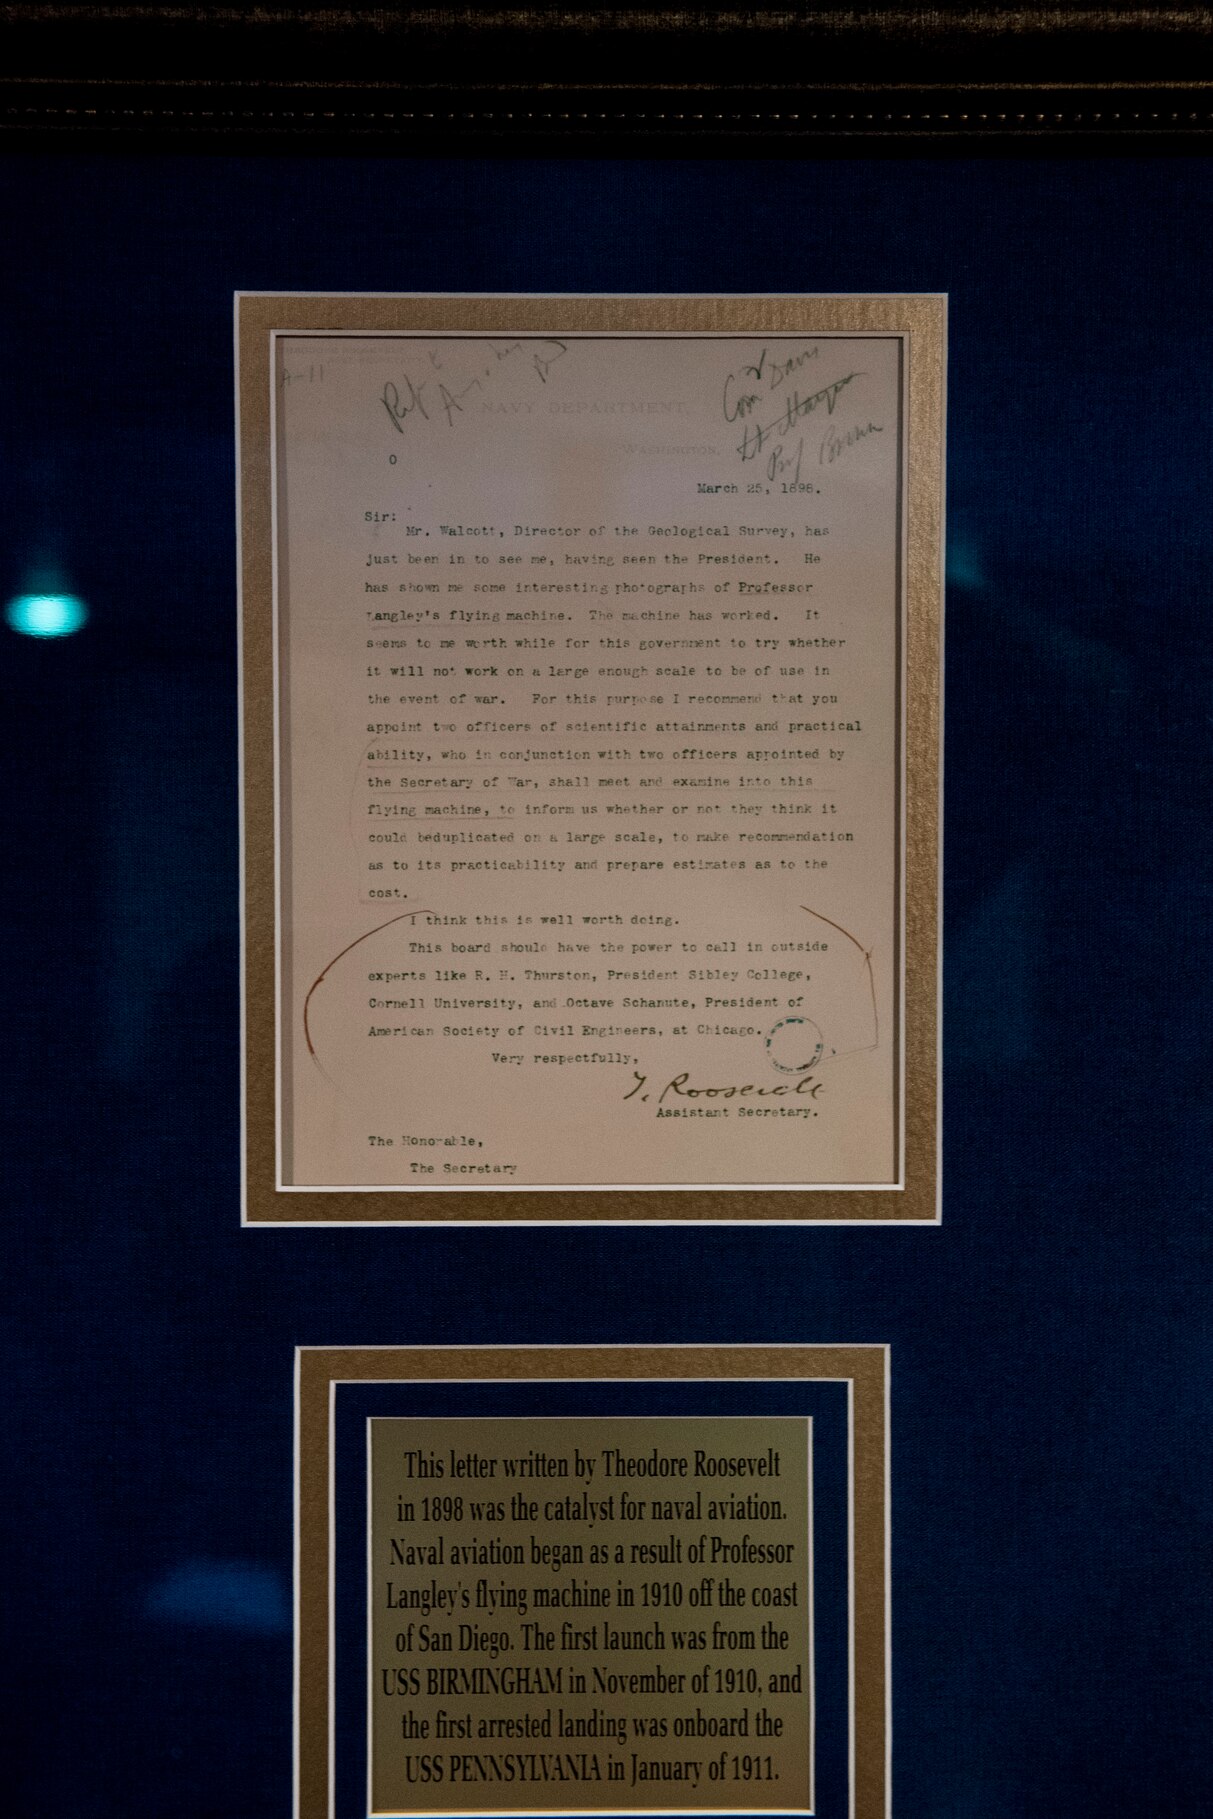 A-11
NAVY DEPARTMENT,
WASHINGTON,
March 25, 1898.
Sir:
Mr. Walcott, Director of the Geological Survey, has
just been in to see me, having seen the President. He
has shown me some interesting photographs of Professor
Langley's flying machine. The machine has worked. It
seems to me worth while for this government to try whether
it will not work on a large enough scale to be of use in
the event of war. For this purpose I recommend that you
appoint two officers of scientific attainments and practical
ability, who in conjunction with two officers appointed by
the Secretary of War, shall meet and examine into this
flying machine, to inform us whether or not they think it
could beduplicated on a large scale, to make recommendation
as to its practicability and prepare estimates as to the
cost.
I think this is well worth doing.
This board should have the power to call in outside
experts like R. H. Thurston, President Sibley College,
Cornell University, and Octave Schanute, President of
American Society of Civil Engineers, at Chicago.
Very respectfully,
T. Roosevelt
Assistant Secretary.
The Honorable,
The Secretary
This letter written by Theodore Roosevelt
in 1898 was the catalyst for naval aviation.
Naval aviation began as a result of Professor
Langley's flying machine in 1910 off the coast
of San Diego. The first launch was from the
USS BIRMINGHAM in November of 1910, and
the first arrested landing was onboard the
USS PENNSYLVANIA in January of 1911.